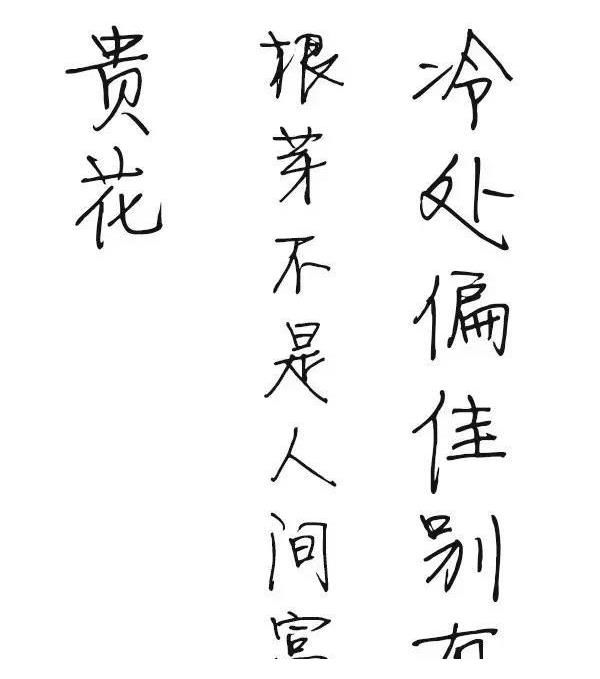 冷处偏佳别有
根芽不是人间富
贵花